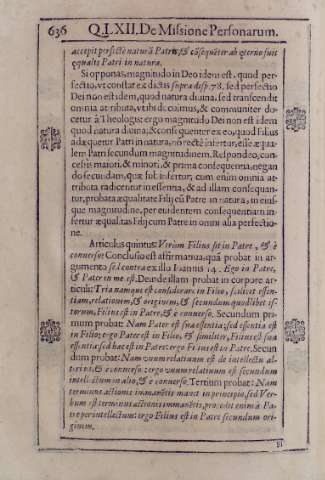 636 Q. LXII. De Missione Personarum.
accepit perfectè naturã Patris, & cõsequẽter ab æterno fuit
æqualis Patri in natura.
Si opponas, magnitudo in Deo idem est, quod per-
fectio, vt constat ex dictis supra disp. 78. sed perfectio
Dei non est idem, quod natura diuina, sed transcendit
omnia attributa, vt ibi docuimus, & communiter do-
cetur à Theologis: ergo magnitudo Dei non est idem
quod natura diuina; & consequenter ex eo, quod Filius
adæquetur Patri in natura, nõ rectè infertur, esse æqua-
lem Patri secundum magnitudinem. Respondeo, con-
cessis maiori, & minori, & prima consequentia, negan-
do secundam, quæ subinfertur; cum enim omnia at-
tributa radicentur in essentia, & ad illam consequan-
tur, probata æqualitate Filij cũ Patre in natura, in eius-
que magnitudine, per euidentem consequentiam in-
fertur æqualitas Filij cum Patre in omni alia perfectio-
ne.
Articulus quintus: Vtrùm Filius sit in Patre, & è
conuerso: Conclusio est affirmatiua, quã probat in ar-
gumento sed contra ex illo Ioannis 14. Ego in Patre,
& Pater in me est. Deinde illam probat in corpore ar-
ticuli: Tria namque est considerare in Filio, scilicet essen-
tiam, relationem, & originem, & secundum quodlibet is-
torum, Filius est in Patre, & è conuerso. Secundum pri-
mum probat: Nam Pater est sua essentia; sed essentia est
in Filio; ergo Pater est in Filio, & similiter, Filius est sua
essentia; sed hæc est in Patre: ergo Filius est in Patre. Secun
dum probat: Nam vnum relatiuum est de intellectu al-
terius, & è conuerso: ergo vnum relatiuum est secundum
intellectum in alio, & è conuerso. Tertium probat: Nam
terminus actionis immanẽtis manet in principio, sed Ver-
bum est terminus actionis immanẽtis, procedit enim à Pa-
tre per intellectum: ergo Filius est in Patre secundum ori-
ginem.